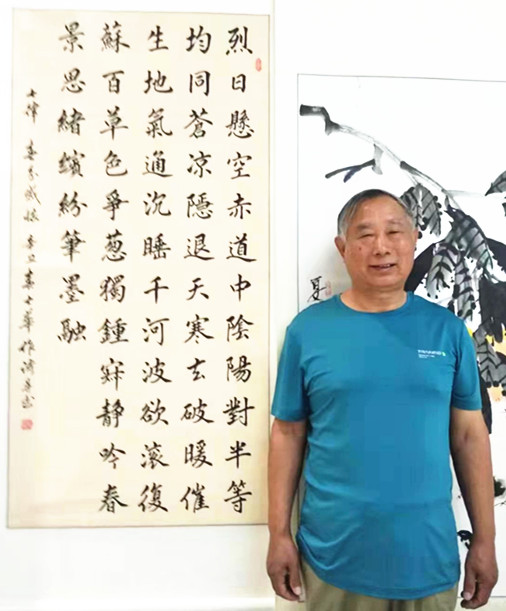 烈日懸空赤道中陰陽對半等
均同蒼凉隱退天寒去破暖催
生地氣通沉睡千河波欲滚復
蘇百草色爭葱獨鍾寂静吟春
景思緒繽紛筆墨融
七律 春分感懷 辛丑春
夏